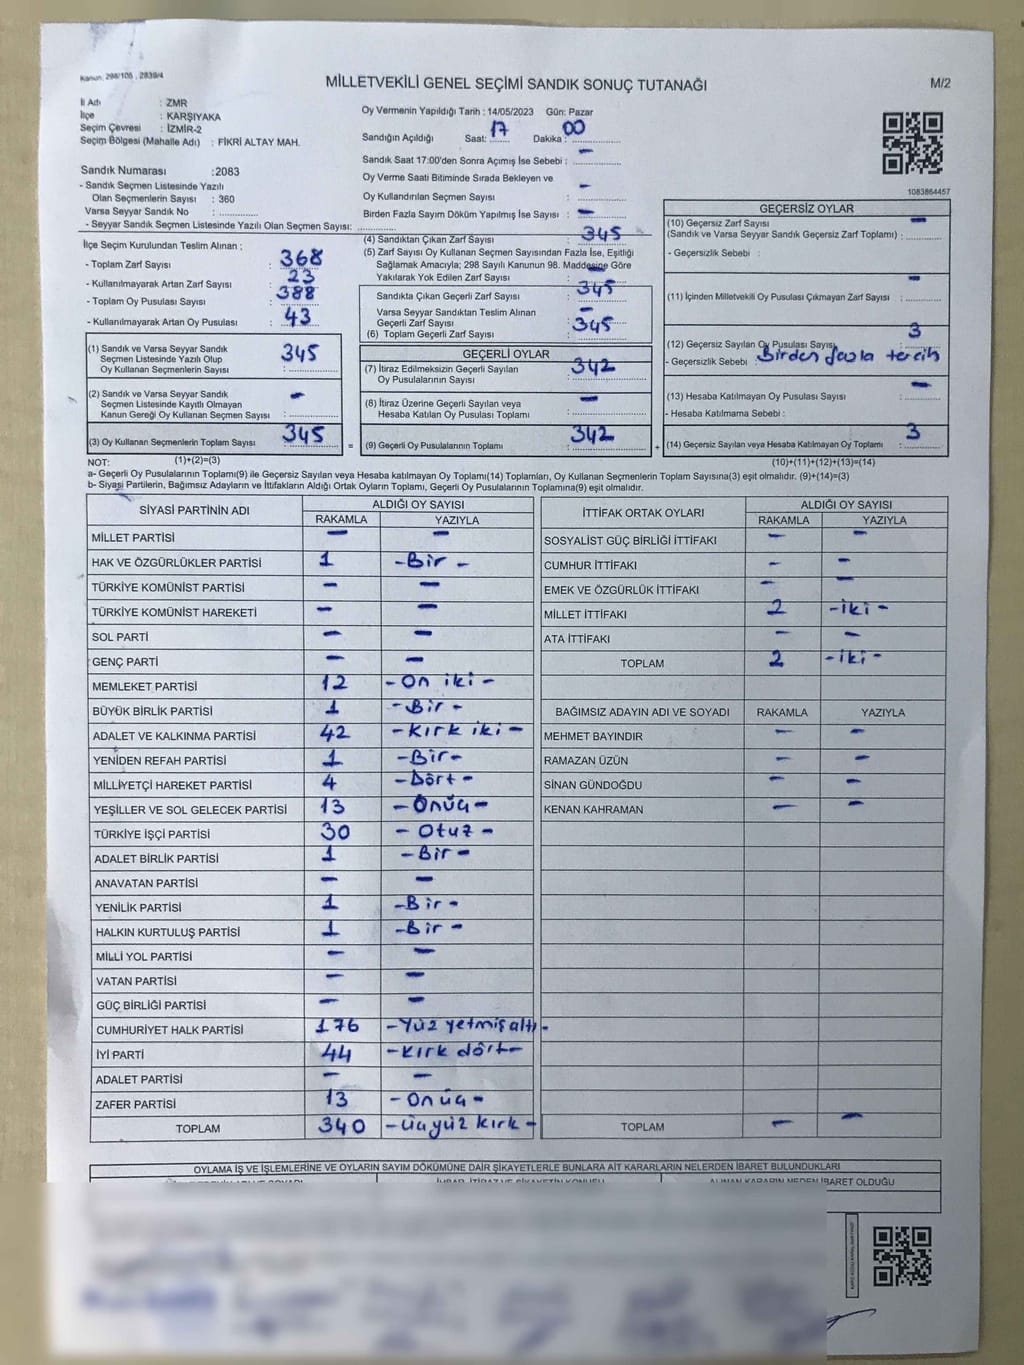 Kanun: 298/105 , 2839/4
MİLLETVEKİLİ GENEL SEÇİMİ SANDIK SONUÇ TUTANAĞI
M/2
İl Adı : ZMR
İlçe : KARŞIYAKA
Seçim Çevresi : İZMİR-2
Seçim Bölgesi (Mahalle Adı) : FİKRİ ALTAY MAH.
Oy Vermenin Yapıldığı Tarih : 14/05/2023 Gün: Pazar
Sandığın Açıldığı Saat: 17 Dakika : 00
Sandık Saat 17:00'den Sonra Açımış İse Sebebi : -
Oy Verme Saati Bitiminde Sırada Bekleyen ve
Oy Kullandırılan Seçmen Sayısı : -
Birden Fazla Sayım Döküm Yapılmış İse Sayısı : -
Sandık Numarası :2083
- Sandık Seçmen Listesinde Yazılı
Olan Seçmenlerin Sayısı : 360
Varsa Seyyar Sandık No :
- Seyyar Sandık Seçmen Listesinde Yazılı Olan Seçmen Sayısı:
1083864457
İlçe Seçim Kurulundan Teslim Alınan ;
- Toplam Zarf Sayısı : 368
- Kullanılmayarak Artan Zarf Sayısı : 23
- Toplam Oy Pusulası Sayısı : 388
- Kullanılmayarak Artan Oy Pusulası : 43
(1) Sandık ve Varsa Seyyar Sandık
Seçmen Listesinde Yazılı Olup
Oy Kullanan Seçmenlerin Sayısı : 345
(2) Sandık ve Varsa Seyyar Sandık
Seçmen Listesinde Kayıtlı Olmayan
Kanun Gereği Oy Kullanan Seçmen Sayısı : -
(3) Oy Kullanan Seçmenlerin Toplam Sayısı : 345
(1)+(2)=(3)
(4) Sandıktan Çıkan Zarf Sayısı : 345
(5) Zarf Sayısı Oy Kullanan Seçmen Sayısından Fazla İse, Eşitliği
Sağlamak Amacıyla; 298 Sayılı Kanunun 98. Maddesine Göre
Yakılarak Yok Edilen Zarf Sayısı : -
Sandıkta Çıkan Geçerli Zarf Sayısı : 345
Varsa Seyyar Sandıktan Teslim Alınan
Geçerli Zarf Sayısı : -
(6) Toplam Geçerli Zarf Sayısı : 345
GEÇERLİ OYLAR
(7) İtiraz Edilmeksizin Geçerli Sayılan
Oy Pusulalarının Sayısı : 342
(8) İtiraz Üzerine Geçerli Sayılan veya
Hesaba Katılan Oy Pusulası Toplamı : -
= (9) Geçerli Oy Pusulalarının Toplamı : 342
GEÇERSİZ OYLAR
(10) Geçersiz Zarf Sayısı
(Sandık ve Varsa Seyyar Sandık Geçersiz Zarf Toplamı) : -
- Geçersizlik Sebebi :
(11) İçinden Milletvekili Oy Pusulası Çıkmayan Zarf Sayısı : -
(12) Geçersiz Sayılan Oy Pusulası Sayısı : 3
- Geçersizlik Sebebi : Birden fazla tercih
(13) Hesaba Katılmayan Oy Pusulası Sayısı : -
- Hesaba Katılmama Sebebi :
+ (14) Geçersiz Sayılan veya Hesaba Katılmayan Oy Toplamı : 3
(10)+(11)+(12)+(13)=(14)
NOT:
a- Geçerli Oy Pusulalarının Toplamı(9) ile Geçersiz Sayılan veya Hesaba katılmayan Oy Toplamı(14) Toplamları, Oy Kullanan Seçmenlerin Toplam Sayısına(3) eşit olmalıdır. (9)+(14)=(3)
b- Siyasi Partilerin, Bağımsız Adayların ve İttifakların Aldığı Ortak Oyların Toplamı, Geçerli Oy Pusulalarının Toplamına(9) eşit olmalıdır.
SİYASİ PARTİNİN ADI ALDIĞI OY SAYISI
RAKAMLA YAZIYLA
MİLLET PARTİSİ - -
HAK VE ÖZGÜRLÜKLER PARTİSİ 1 -Bir -
TÜRKİYE KOMÜNİST PARTİSİ - -
TÜRKİYE KOMÜNİST HAREKETİ - -
SOL PARTİ - -
GENÇ PARTİ - -
MEMLEKET PARTİSİ 12 -On iki-
BÜYÜK BİRLİK PARTİSİ 1 -Bir-
ADALET VE KALKINMA PARTİSİ 42 -Kırk iki-
YENİDEN REFAH PARTİSİ 1 -Bir-
MİLLİYETÇİ HAREKET PARTİSİ 4 -Dört-
YEŞİLLER VE SOL GELECEK PARTİSİ 13 -Onüç-
TÜRKİYE İŞÇİ PARTİSİ 30 -Otuz-
ADALET BİRLİK PARTİSİ 1 -Bir-
ANAVATAN PARTİSİ - -
YENİLİK PARTİSİ 1 -Bir-
HALKIN KURTULUŞ PARTİSİ 1 -Bir-
MİLLİ YOL PARTİSİ - -
VATAN PARTİSİ - -
GÜÇ BİRLİĞİ PARTİSİ - -
CUMHURİYET HALK PARTİSİ 176 -Yüz yetmiş altı-
İYİ PARTİ 44 -Kırk dört-
ADALET PARTİSİ - -
ZAFER PARTİSİ 13 -Onüç-
TOPLAM 340 -üçyüz kırk-
İTTİFAK ORTAK OYLARI ALDIĞI OY SAYISI
RAKAMLA YAZIYLA
SOSYALİST GÜÇ BİRLİĞİ İTTİFAKI - -
CUMHUR İTTİFAKI - -
EMEK VE ÖZGÜRLÜK İTTİFAKI - -
MİLLET İTTİFAKI 2 -iki-
ATA İTTİFAKI - -
TOPLAM 2 -iki-
BAĞIMSIZ ADAYIN ADI VE SOYADI RAKAMLA YAZIYLA
MEHMET BAYINDIR - -
RAMAZAN ÜZÜN - -
SİNAN GÜNDOĞDU - -
KENAN KAHRAMAN - -
TOPLAM - -
OYLAMA İŞ VE İŞLEMLERİNE VE OYLARIN SAYIM DÖKÜMÜNE DAİR ŞİKAYETLERLE BUNLARA AİT KARARLARIN NELERDEN İBARET BULUNDUKLARI
İHBAR, İTİRAZ VE ŞİKAYETİN KONUSU
ALINAN KARARIN NEDEN İBARET OLDUĞU